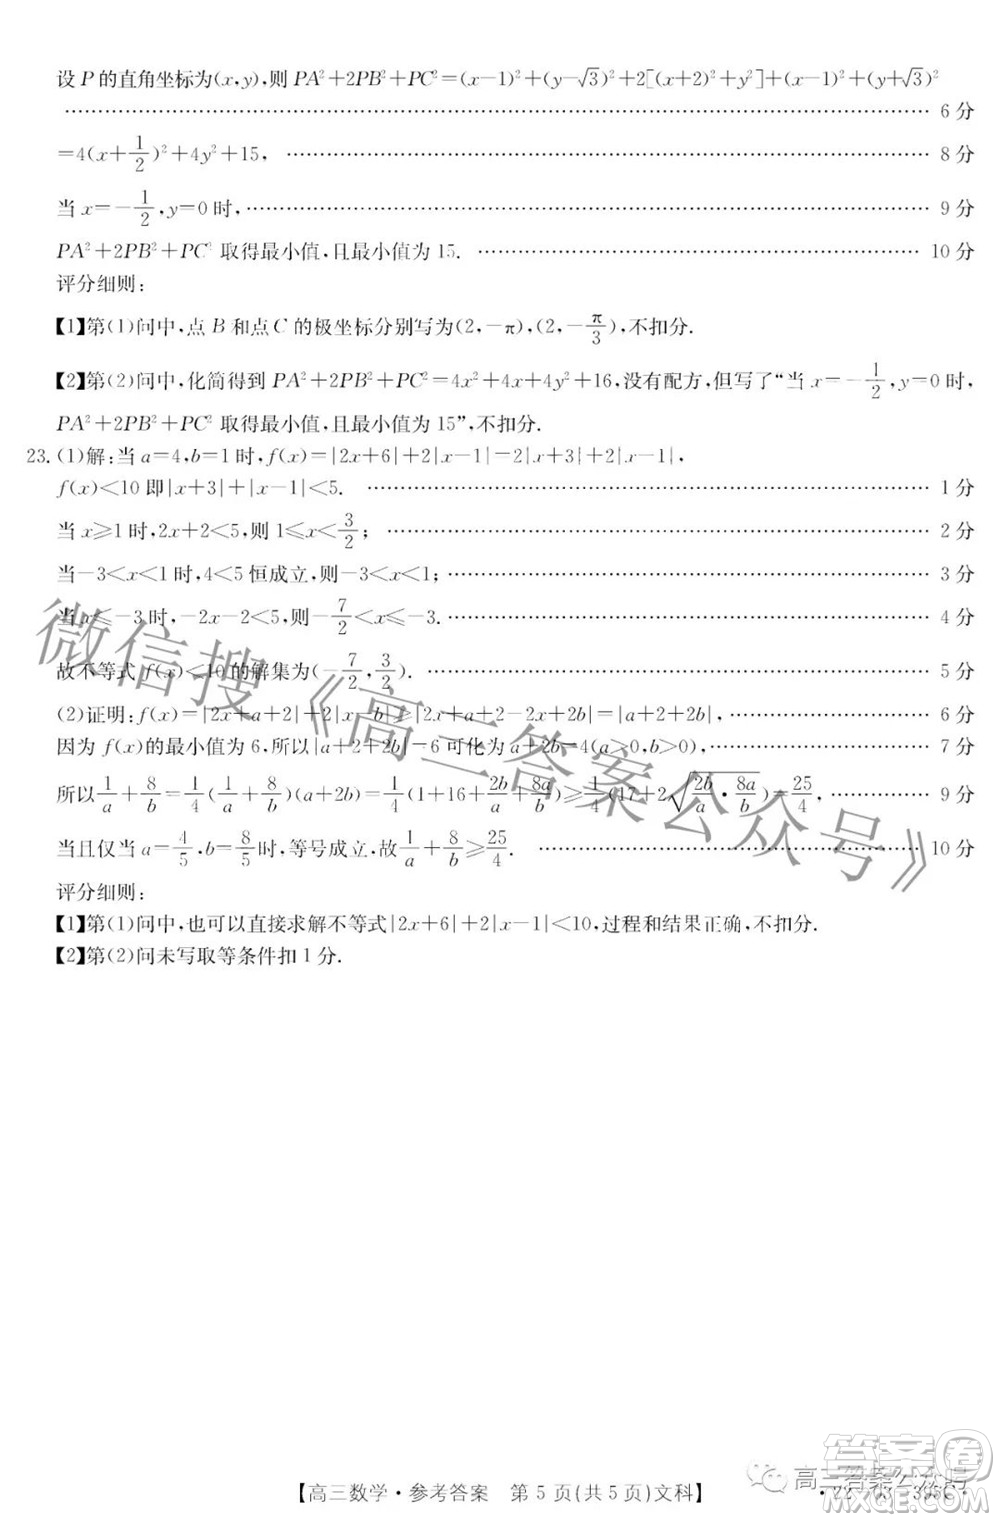 设 P 的直角坐标为(x,y),则 PA²+2PB²+PC²=(x−1)²+(y−√3)²+2[(x+2)²+y²]+(x−1)²+(y+√3)²
…… 6 分
=4(x+1/2)²+4y²+15, …… 8 分
当 x=−1/2,y=0 时, …… 9 分
PA²+2PB²+PC² 取得最小值,且最小值为 15. …… 10 分
评分细则:
【1】第(1)问中,点 B 和点 C 的极坐标分别写为(2,−π),(2,−π/3),不扣分.
【2】第(2)问中,化简得到 PA²+2PB²+PC²=4x²+4x+4y²+16,没有配方,但写了“当 x=−1/2,y=0 时,
PA²+2PB²+PC² 取得最小值,且最小值为 15”,不扣分.
23.(1)解:当 a=4,b=1 时,f(x)=|2x+6|+2|x−1|=2|x+3|+2|x−1|,
f(x)<10 即|x+3|+|x−1|<5. …… 1 分
当 x≥1 时,2x+2<5,则 1≤x<3/2; …… 2 分
当−3<x<1 时,4<5 恒成立,则−3<x<1; …… 3 分
当 x≤−3 时,−2x−2<5,则−7/2<x≤−3. …… 4 分
故不等式 f(x)<10 的解集为(−7/2,3/2). …… 5 分
(2)证明:f(x)=|2x+a+2|+2|x−b|≥|2x+a+2−2x+2b|=|a+2+2b|, …… 6 分
因为 f(x)的最小值为 6,所以|a+2+2b|=6 可化为 a+2b=4(a>0,b>0), …… 7 分
所以1/a+8/b=1/4(1/a+8/b)(a+2b)=1/4(1+16+2b/a+8a/b)≥1/4(17+2√(2b/a·8a/b))=25/4, …… 9 分
当且仅当 a=4/5,b=8/5时,等号成立,故1/a+8/b≥25/4. …… 10 分
评分细则:
【1】第(1)问中,也可以直接求解不等式|2x+6|+2|x−1|<10,过程和结果正确,不扣分.
【2】第(2)问未写取等条件扣 1 分.
微信搜《高三答案公众号》
答案圈
高三答案公众号
【高三数学·参考答案 第 5 页(共 5 页)文科】